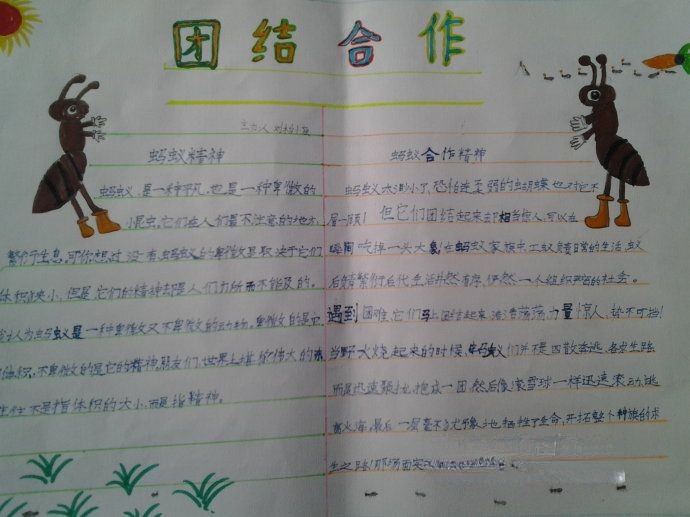 团结合作
主办人
蚂蚁精神
蚂蚁,是一种平凡,也是一种卑微的
小昆虫,它们在人们最不注意的地方,
繁衍生息,可你想过没有蚂蚁的卑微是取决于它们
体积狭小,但是它们的精神却是人们力所而不能及的。
认为蚂蚁是一种卑微又不卑微的动物。卑微的是它
体积,不卑微的是它的精神,朋友们,世界上堪称伟大的
往往不是指体积的大小,而是指精神。
蚂蚁合作精神
蚂蚁太渺小了,恐怕连柔弱的蝴蝶也对它不
屑一顾!但它们团结起来却相当惊人,可以在
瞬间吃掉一头大象,在蚂蚁家族中工蚁负责日常的生活,蚁
后负责繁衍后代生活井然有序,俨然一个组织严密的社会。
遇到困难,它们马上团结起来浩浩荡荡,力量惊人,势不可挡!
当野火烧起来的时候,蚂蚁们并不是四散奔逃,各求生路
而是迅速聚拢,抱成一团,然后像滚雪球一样迅速滚动,逃
离火海,最后一层毫不犹豫地,牺牲了生命,开拓整个种族的求
生之路!那场面实